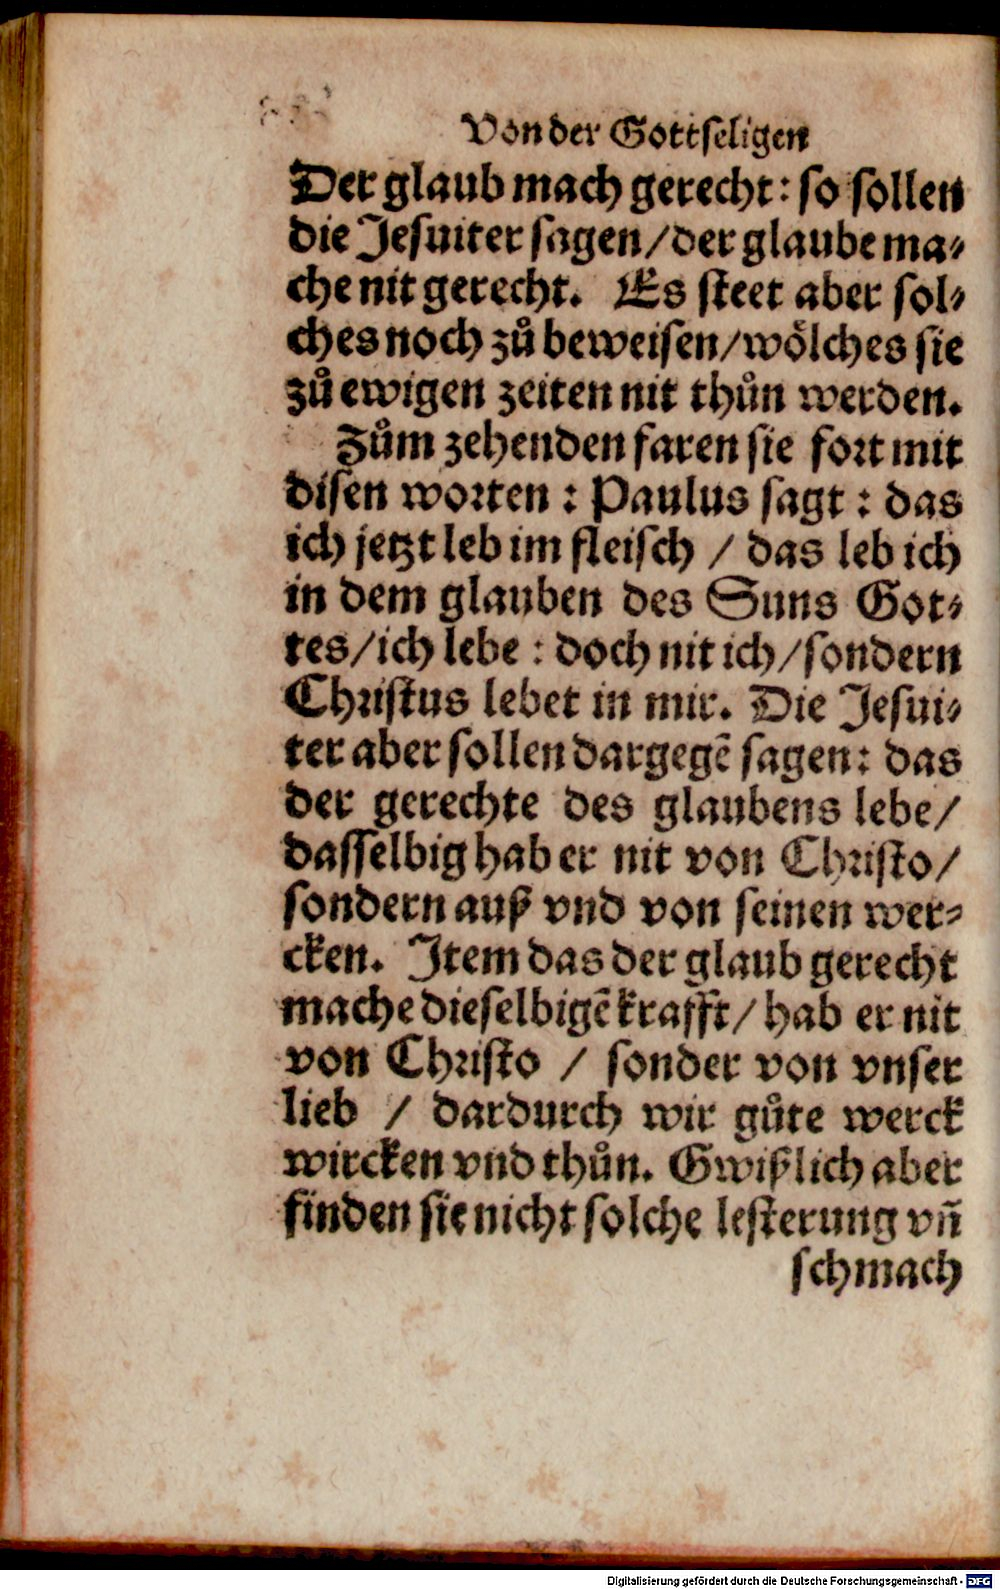 Von der Gottseligen
Der glaub mach gerecht: so sollen
die Jesuiter sagen/der glaube ma⸗
che nit gerecht. Es steet aber sol⸗
ches noch zů beweisen/woͤlches sie
zů ewigen zeiten nit thůn werden.
Zům zehenden faren sie fort mit
disen worten : Paulus sagt : das
ich jetzt leb im fleisch / das leb ich
in dem glauben des Suns Got⸗
tes/ich lebe : doch nit ich/sondern
Christus lebet in mir. Die Jesui⸗
ter aber sollen dargegē sagen: das
der gerechte des glaubens lebe/
dasselbig hab er nit von Christo/
sondern auß vnd von seinen wer⸗
cken. Item das der glaub gerecht
mache dieselbigē krafft/ hab er nit
von Christo / sonder von vnser
lieb / dardurch wir gůte werck
wircken vnd thůn. Gwißlich aber
finden sie nicht solche lesterung vn̄
schmach
Digitalisierung gefördert durch die Deutsche Forschungsgemeinschaft - DFG